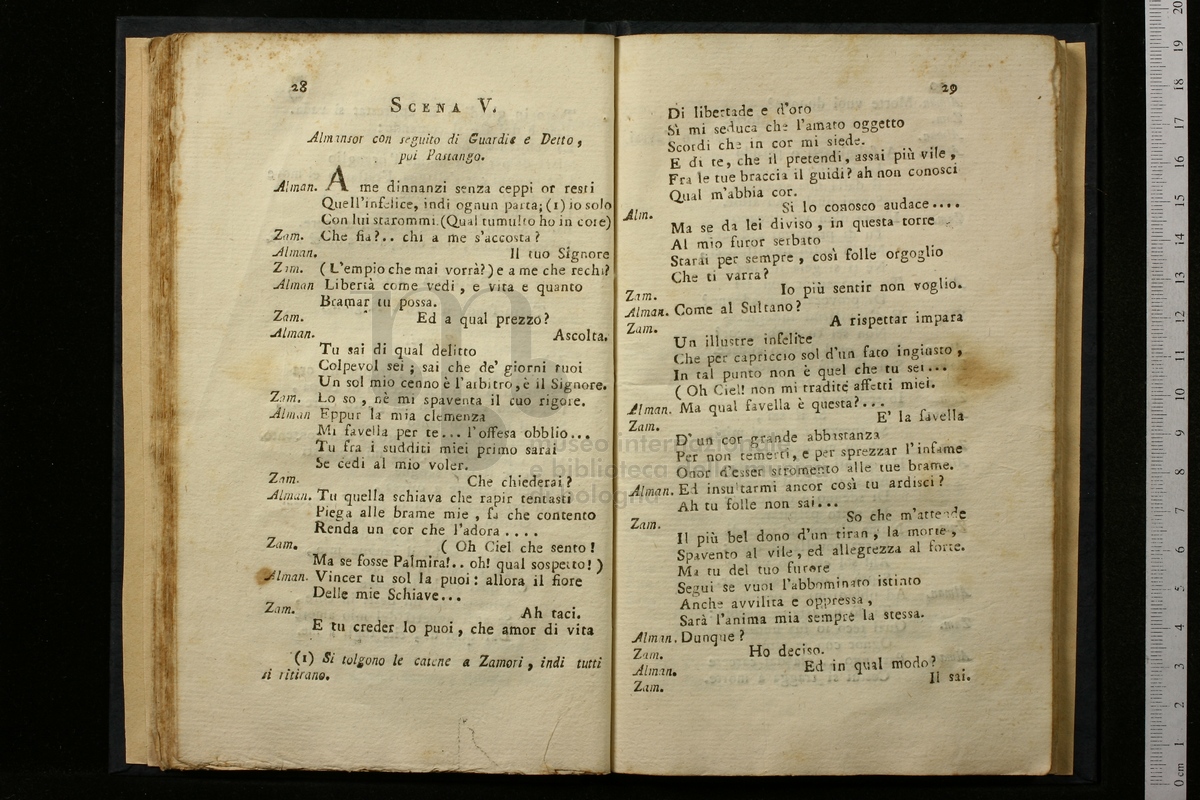 28
SCENA V.
Almansor con seguito di Guardie e Detto,
poi Pastango.
Alman. A me dinnanzi senza ceppi or resti
Quell'infelice, indi ognun parta; (1) io solo
Con lui starommi. (Qual tumulto ho in core)
Zam. Che fia?.. chi a me s'accosta?
Alman. Il tuo Signore
Zam. (L'empio che mai vorrà?) e a me che rechi?
Alman Libertà come vedi, e vita e quanto
Bramar tu possa.
Zam. Ed a qual prezzo?
Alman. Ascolta.
Tu sai di qual delitto
Colpevol sei; sai che de' giorni tuoi
Un sol mio cenno è l'arbitro, è il Signore.
Zam. Lo so, nè mi spaventa il tuo rigore.
Alman Eppur la mia clemenza
Mi favella per te... l'offesa obblio...
Tu fra i sudditi miei primo sarai
Se cedi al mio voler.
Zam. Che chiederai?
Alman. Tu quella schiava che rapir tentasti
Piega alle brame mie, fa che contento
Renda un cor che l'adora....
Zam. (Oh Ciel che sento!
Ma se fosse Palmira!.. oh! qual sospetto!)
Alman. Vincer tu sol la puoi: allora il fiore
Delle mie Schiave...
Zam. Ah taci.
E tu creder lo puoi, che amor di vita
(1) Si tolgono le catene a Zamori, indi tutti
si ritirano.
29
Di libertade e d'oro
Sì mi seduca che l'amato oggetto
Scordi che in cor mi siede.
E di te, che il pretendi, assai più vile,
Fra le tue braccia il guidi? ah non conosci
Qual m'abbia cor.
Alm. Si lo conosco audace....
Ma se da lei diviso, in questa torre
Al mio furor serbato
Starai per sempre, così folle orgoglio
Che ti varra?
Zam. Io più sentir non voglio.
Alman. Come al Sultano?
Zam. A rispettar impara
Un illustre infelice
Che per capriccio sol d'un fato ingiusto,
In tal punto non è quel che tu sei...
(Oh Ciel! non mi tradite affetti miei.
Alman. Ma qual favella è questa?...
Zam. E' la favella
D'un cor grande abbastanza
Per non temerti, e per sprezzar l'infame
Onor d'esser stromento alle tue brame.
Alman. Ed insultarmi ancor così tu ardisci?
Ah tu folle non sai...
Zam. So che m'attende
Il più bel dono d'un tiran, la morte,
Spavento al vile, ed allegrezza al forte.
Ma tu del tuo furore
Segui se vuoi l'abbominato istinto
Anche avvilita e oppressa,
Sarà l'anima mia sempre la stessa.
Alman. Dunque?
Zam. Ho deciso.
Alman. Ed in qual modo?
Zam. Il sai.
museo internazionale
e biblioteca della musica
di bologna